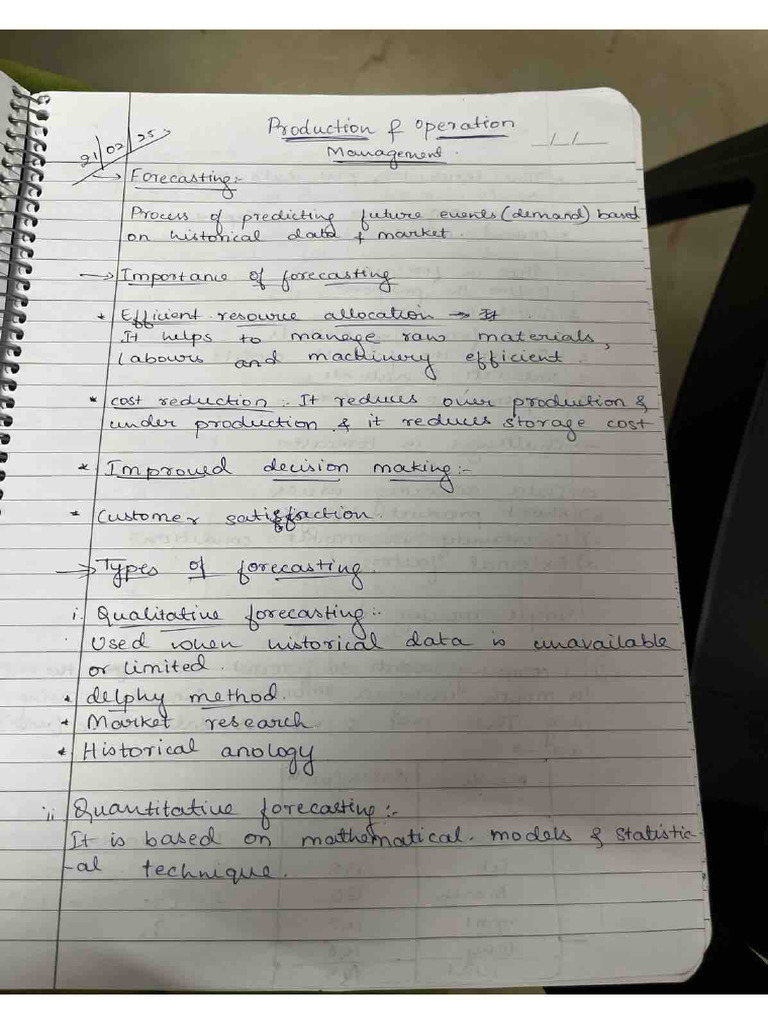 Production & Operation
Management.
21/02/25
→ Forecasting:-
Process of predicting future events (demand) based
on historical data & market.
→ Importance of forecasting
* Efficient resource allocation →
It helps to manage raw materials,
labours and machinery efficient
* cost reduction :- It reduces over production &
under production & it reduces storage cost
* Improved decision making:-
* Customer satisfaction.
→ Types of forecasting.
i. Qualitative forecasting:-
Used when historical data is unavailable
or limited.
* delphy method.
* Market research
* Historical anology
ii Quantitative forecasting:-
It is based on mathematical models & statistic-
-al technique.